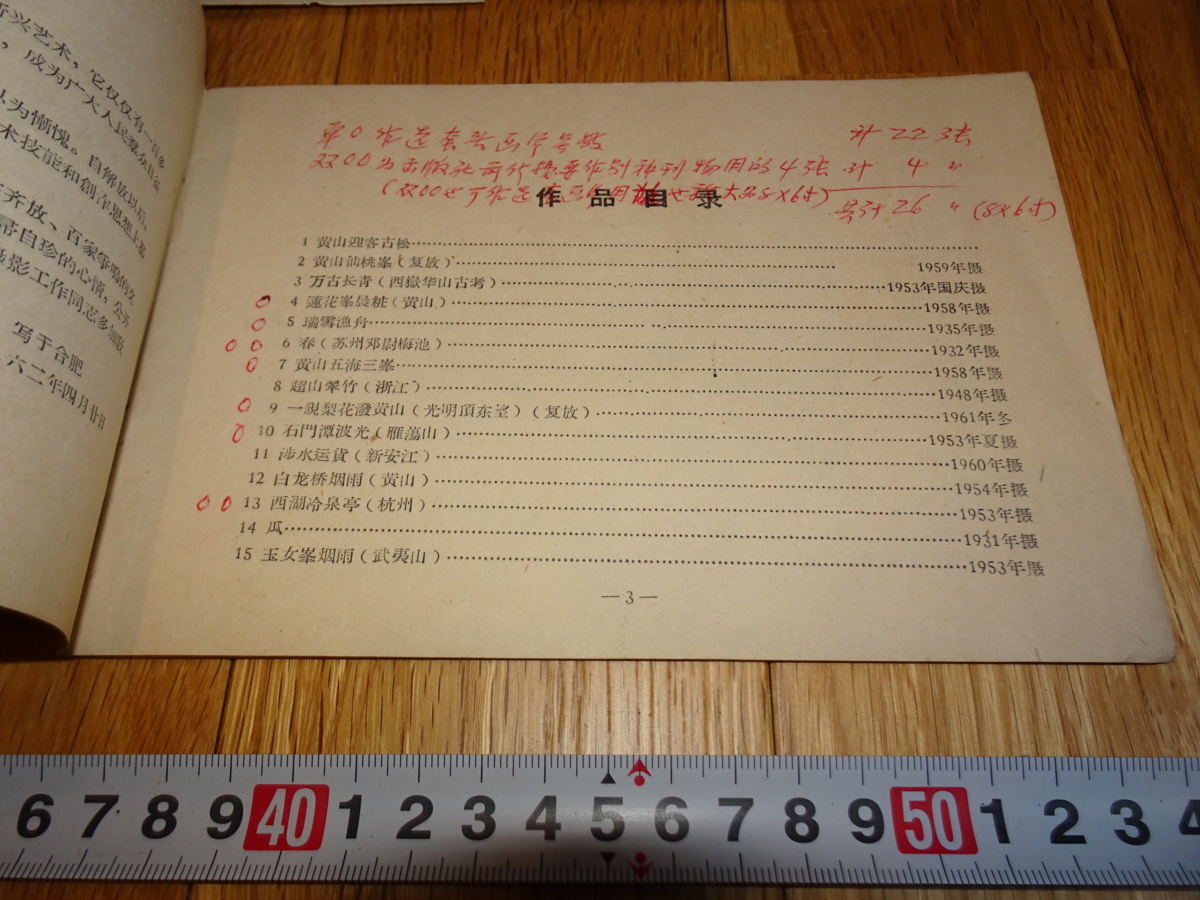 新兴艺术，它仅仅有一百多
，成为广大人民群众喜
以为惭愧。自解放以后，
术技能和創作思想上都
花齐放、百家爭鳴的文
帚自珍的心情，公齐
摄影工作同志多加教
写于合肥
六二年四月廿日
单0作选套头画片号数
计22张
双00为出版社
4张 计 4 〃
共计26 〃 (8x6寸)
作品目录
1 黄山迎客古松
2 黄山仙桃峯（复放） 1959年摄
3 万古长青（西嶽华山古考） 1953年国庆摄
0 4 蓮花峯晨粧（黄山） 1958年摄
0 5 瑞雪漁舟 1935年摄
0 0 6 春（苏州邓尉梅池） 1932年摄
0 7 黄山五海三峯 1958年摄
8 超山翠竹（浙江） 1948年摄
0 9 一覭梨花潑黄山（光明頂东望）（复放） 1961年冬
0 10 石門潭波光（雁蕩山） 1953年夏摄
11 涉水运貨（新安江） 1960年摄
12 白龙桥烟雨（黄山） 1954年摄
0 0 13 西湖冷泉亭（杭州） 1953年摄
14 瓜 1931年摄
15 玉女峯烟雨（武夷山） 1953年摄
—3—
6 7 8 9 40 1 2 3 4 5 6 7 8 9 50 1 2 3 4